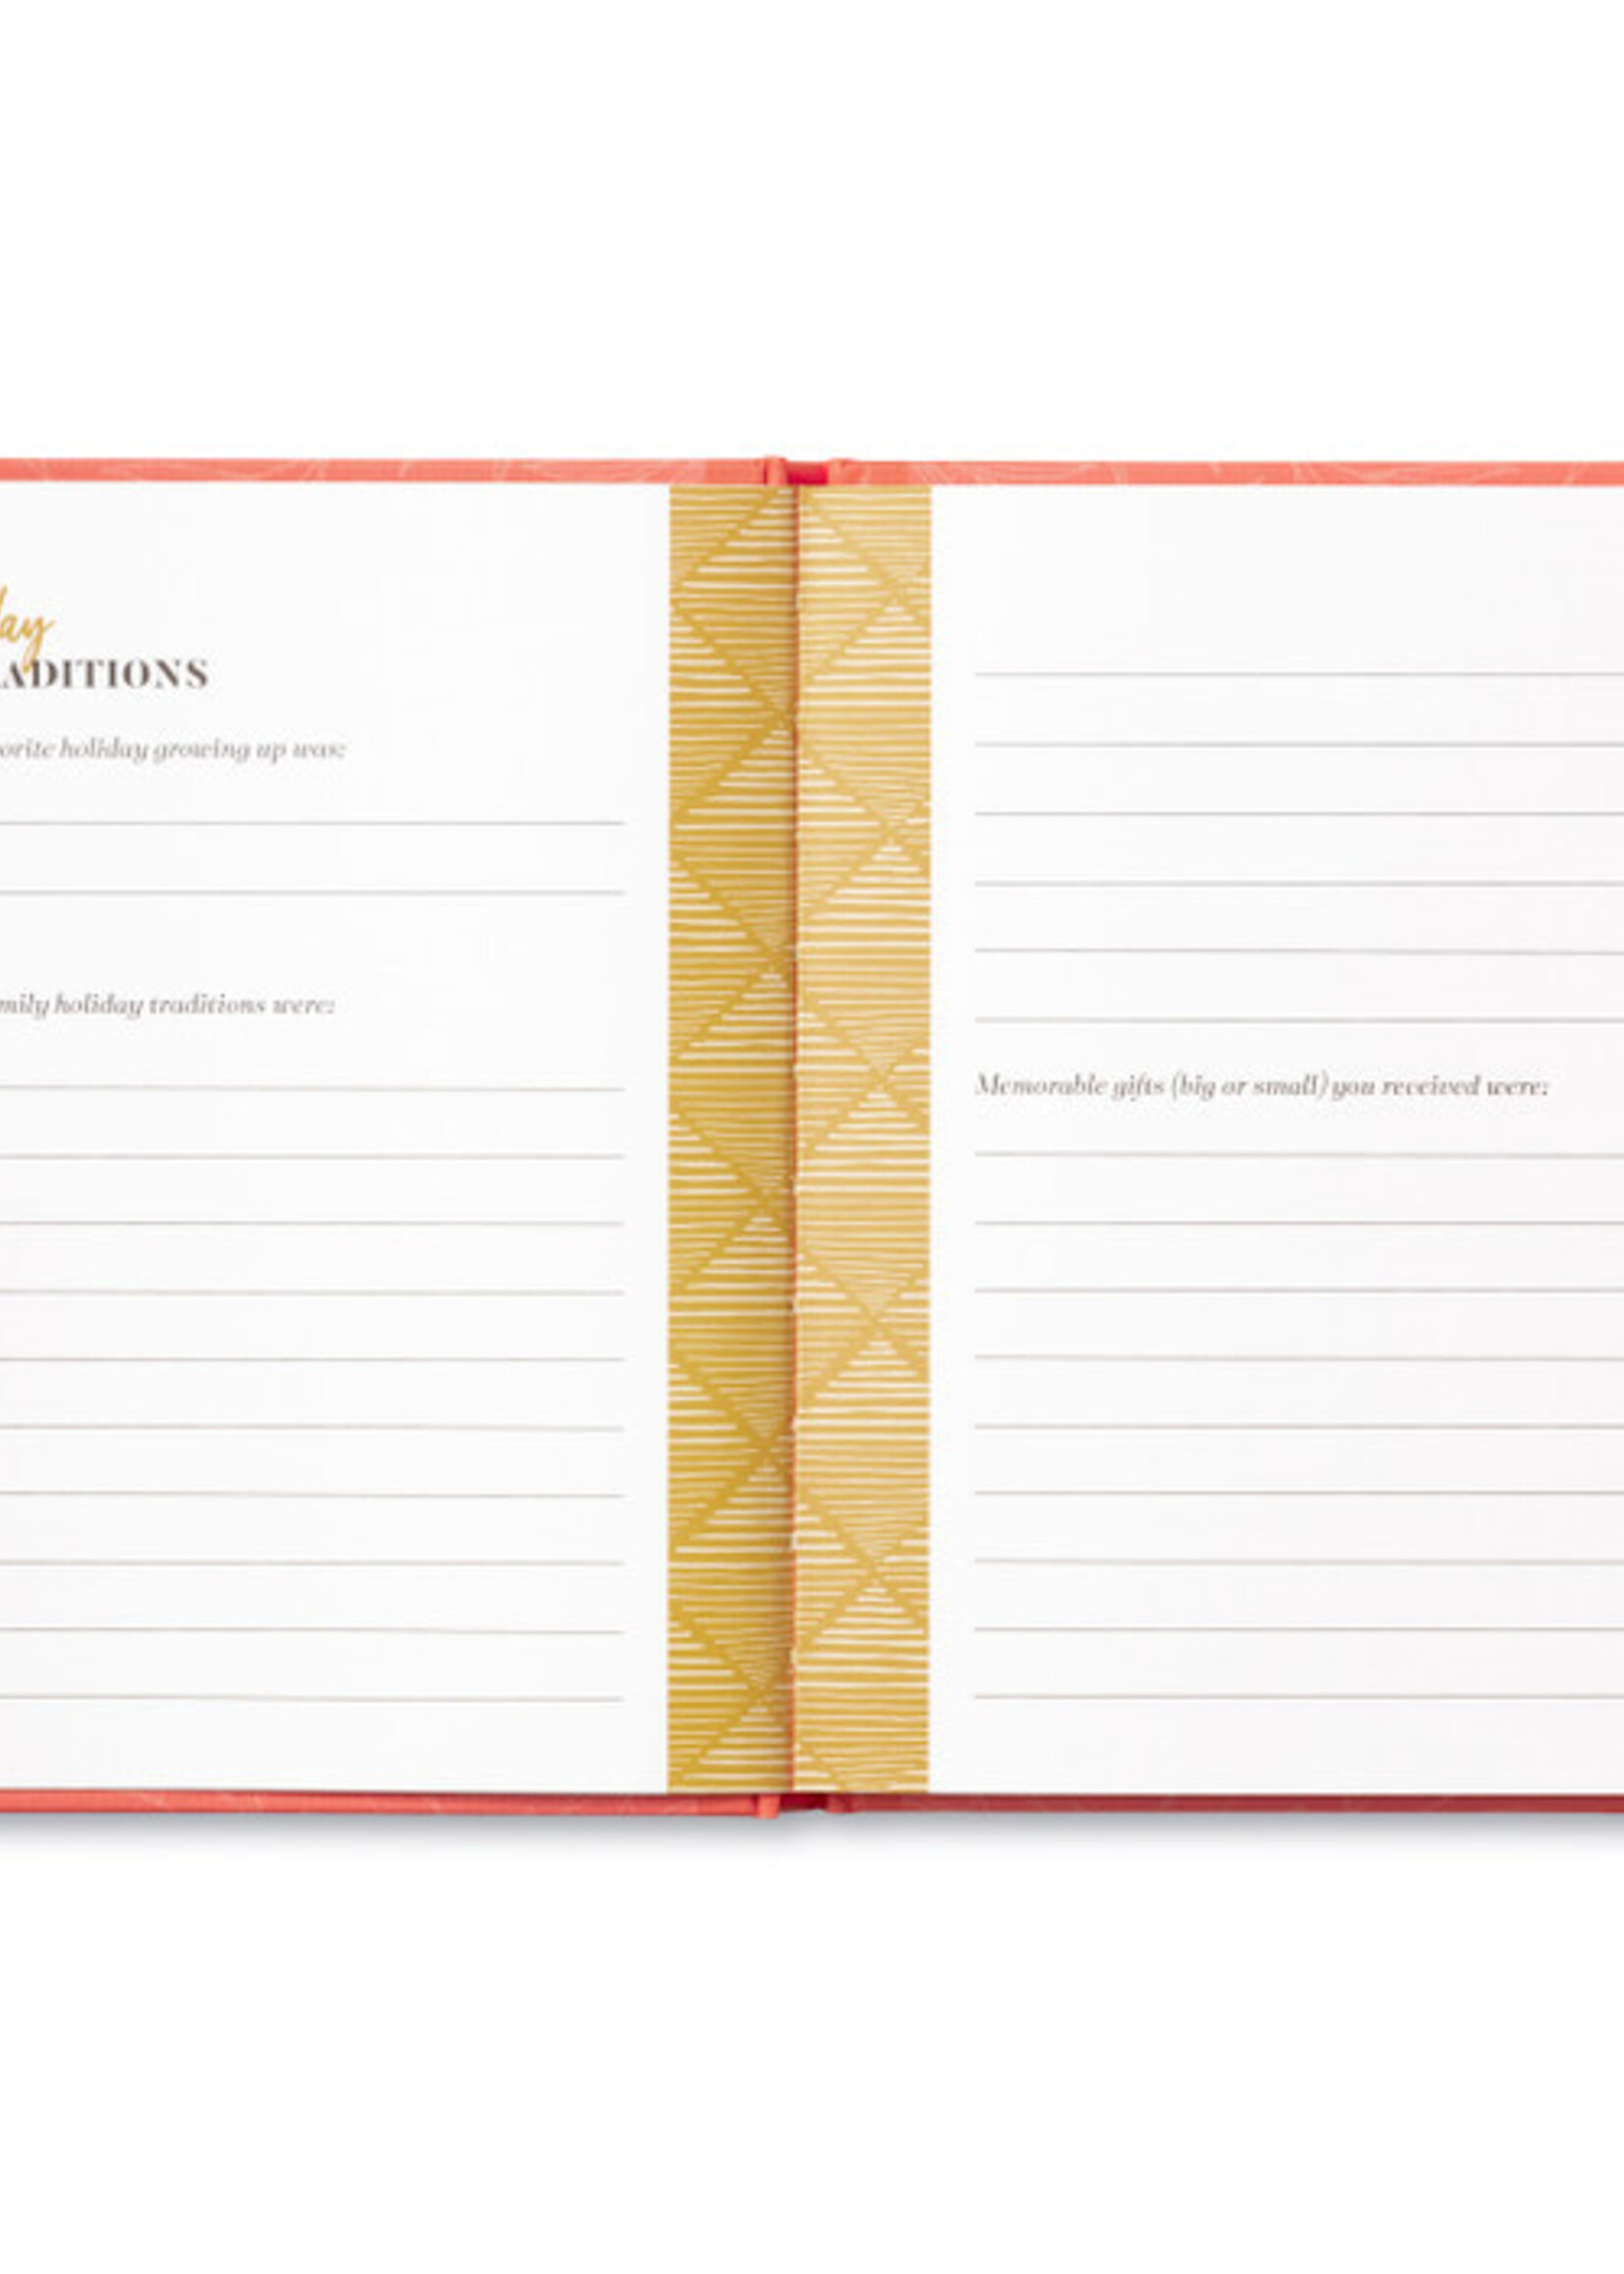 lay
ADITIONS
orite holiday growing up was:
mily holiday traditions were:
Memorable gifts (big or small) you received were: